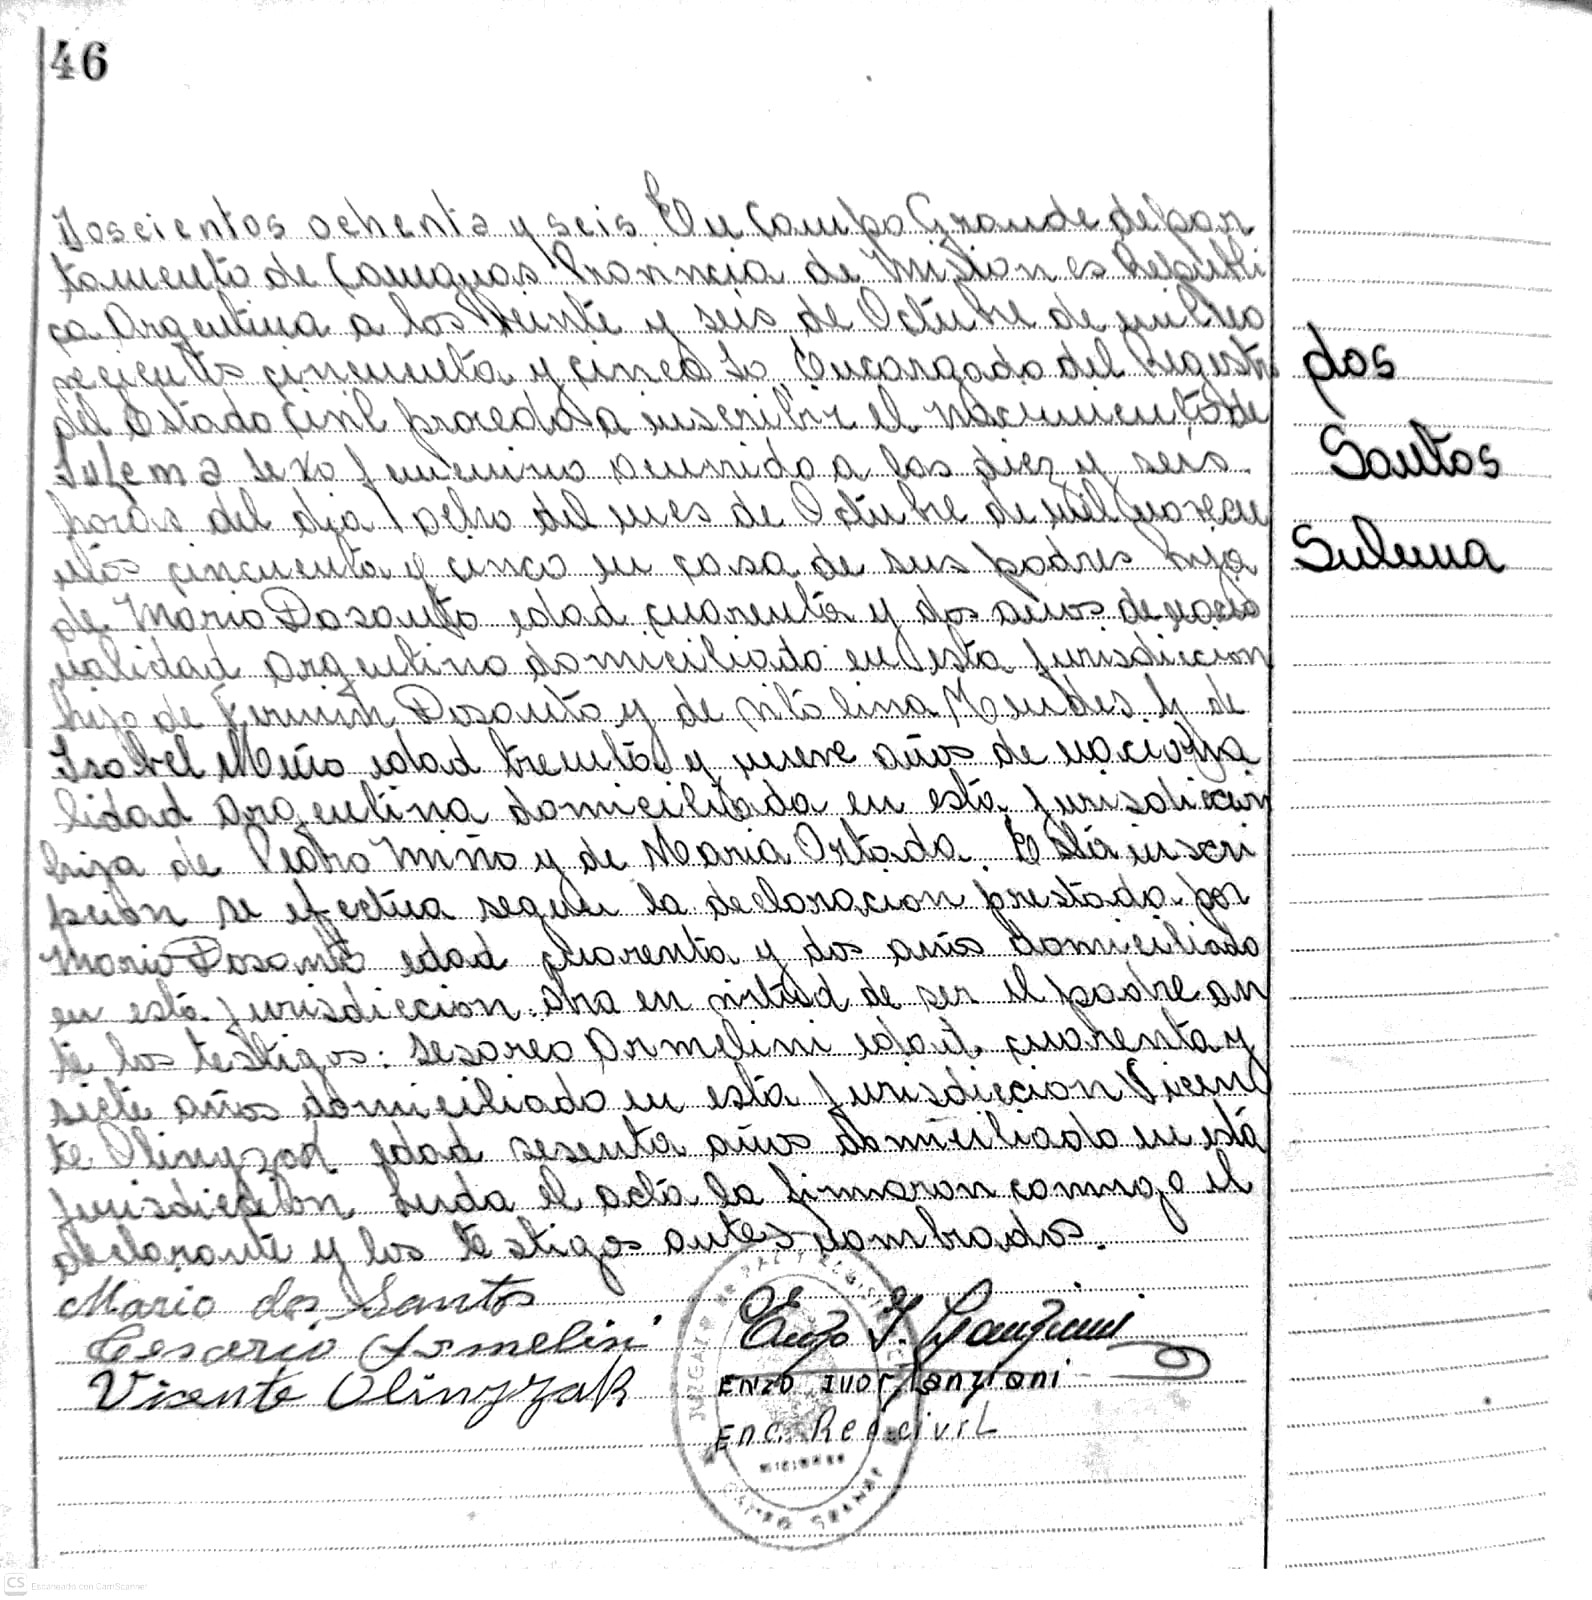 46
Doscientos ochenta y seis. En Campo Grande depar
tamento de Cainguas Provincia de Misiones Republi
ca Argentina a los Veinte y seis de Octubre de mil no
vecientos cincuenta y cinco Yo, Encargado del Registro
del Estado Civil procedo a inscribir el nacimiento de
sexo femenino ocurrido a las diez y seis
horas del dia ocho del mes de Octubre de mil novecien
utos cincuenta y cinco en casa de sus padres hija
de Mario Dosanto edad cuarenta y dos años de nacio
nalidad argentino domiciliado en esta jurisdiccion
hijo de Fermin Dosanto y de Mendes. y de
Isabel Miño edad treinta y nueve años de naciona
lidad argentina domiciliada en esta jurisdiccion
hija de Pedro Miño y de Maria Ortada. Esta inscri
pcion se efectua segun la declaracion prestada por
Mario Dosanto edad cuarenta y dos años domiciliado
en esta jurisdiccion. en virtud de ser el padre an
te los testigos: Sesareo Armelini edad cuarenta y
siete años domiciliado en esta jurisdiccion Vicen
te Olinyzak edad sesenta años domiciliado en esta
jurisdiccion Leida el acta la firmaron conmigo el
declarante y los testigos antes nombrados.
Mario dos Santos
Cesario Armelini
Vicente Olinyzak
Enc. Reg. civil
dos
Santos
Sulema
JUZGADO DE PAZ Y REGISTRO
MISIONES
CAMPO GRANDE
CS Escaneado con CamScanner